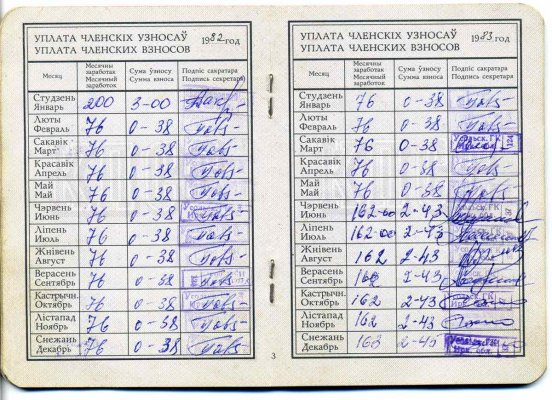 УПЛАТА ЧЛЕНСКІХ УЗНОСАЎ
УПЛАТА ЧЛЕНСКИХ ВЗНОСОВ
1982 год
Месяц
Месячны заработак
Месячный заработок
Сума ўзносу
Сумма взноса
Подпіс сакратара
Подпись секретаря
Студзень
Январь 200 3-00
Люты
Февраль 76 0-38
Сакавік
Март 76 0-38
Красавік
Апрель 76 0-38
Май
Май 76 0-38
Чэрвень
Июнь 76 0-38
Ліпень
Июль 76 0-38
Жнівень
Август 76 0-38
Верасень
Сентябрь 76 0-38
Кастрычн.
Октябрь 76 0-38
Лістапад
Ноябрь 76 0-38
Снежань
Декабрь 76 0-38
3
УПЛАТА ЧЛЕНСКІХ УЗНОСАЎ
УПЛАТА ЧЛЕНСКИХ ВЗНОСОВ
1983 год
Месяц
Месячны заработак
Месячный заработок
Сума ўзносу
Сумма взноса
Подпіс сакратара
Подпись секретаря
Студзень
Январь 76 0-38
Люты
Февраль 76 0-38
Сакавік
Март 76 0-38
Красавік
Апрель 76 0-38
Май
Май 76 0-38
Чэрвень
Июнь 162-00 2-43
Ліпень
Июль 162-00 2-43
Жнівень
Август 162 2-43
Верасень
Сентябрь 162 2-43
Кастрычн.
Октябрь 162 2-43
Лістапад
Ноябрь 162 2-43
Снежань
Декабрь